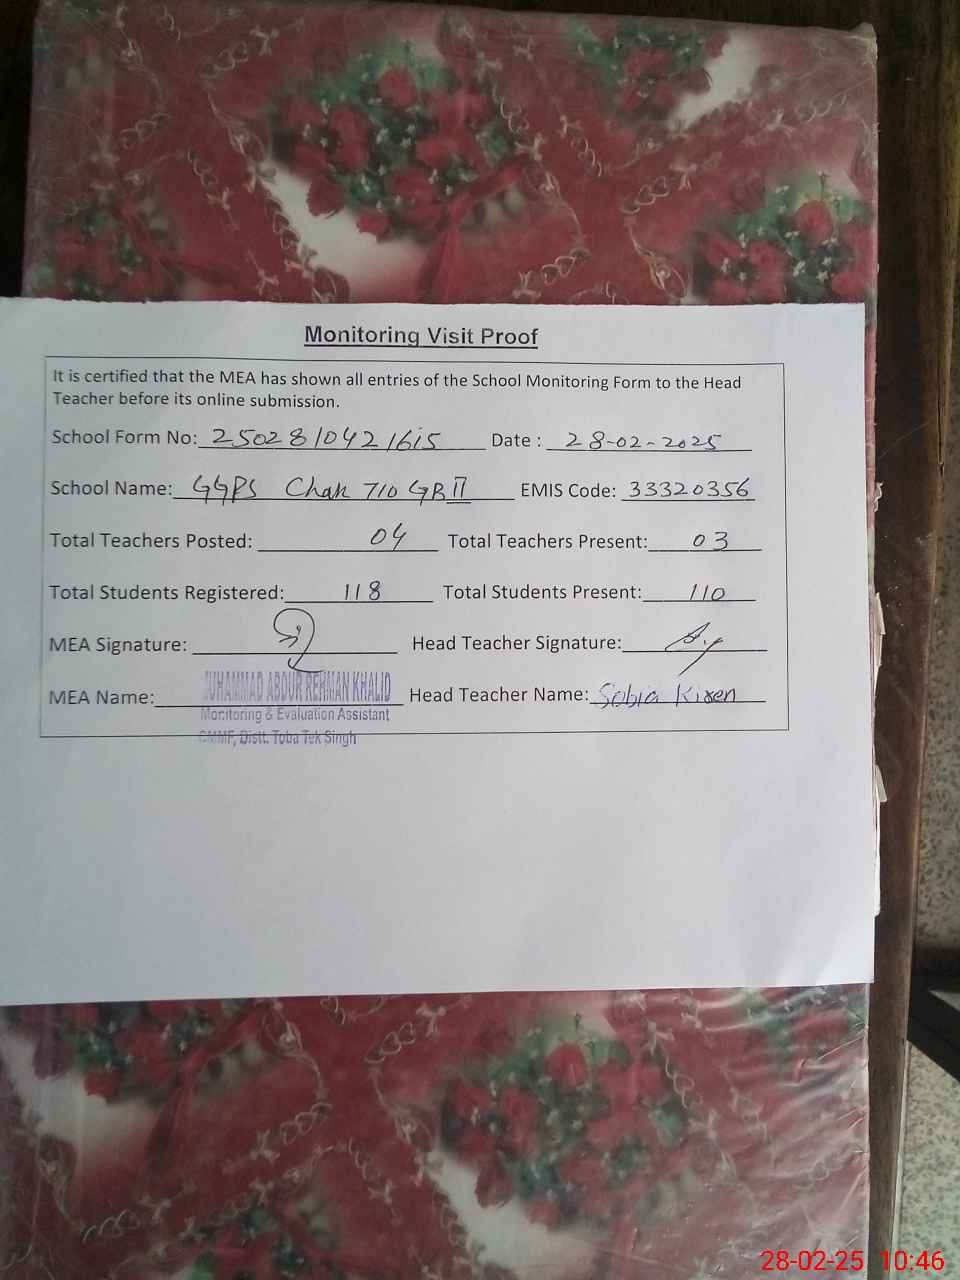 Monitoring Visit Proof
It is certified that the MEA has shown all entries of the School Monitoring Form to the Head
Teacher before its online submission.
School Form No: 2502810421615 Date : 28-02-2025
School Name: GGPS Chak 710 GB II EMIS Code: 33320356
Total Teachers Posted: 04 Total Teachers Present: 03
Total Students Registered: 118 Total Students Present: 110
MEA Signature: Head Teacher Signature:
MEA Name: MUHAMMAD ABDUR REHMAN KHALID Head Teacher Name: Sobia Kiren
Monitoring & Evaluation Assistant
CMMF, Distt. Toba Tek Singh
28-02-25 10:46